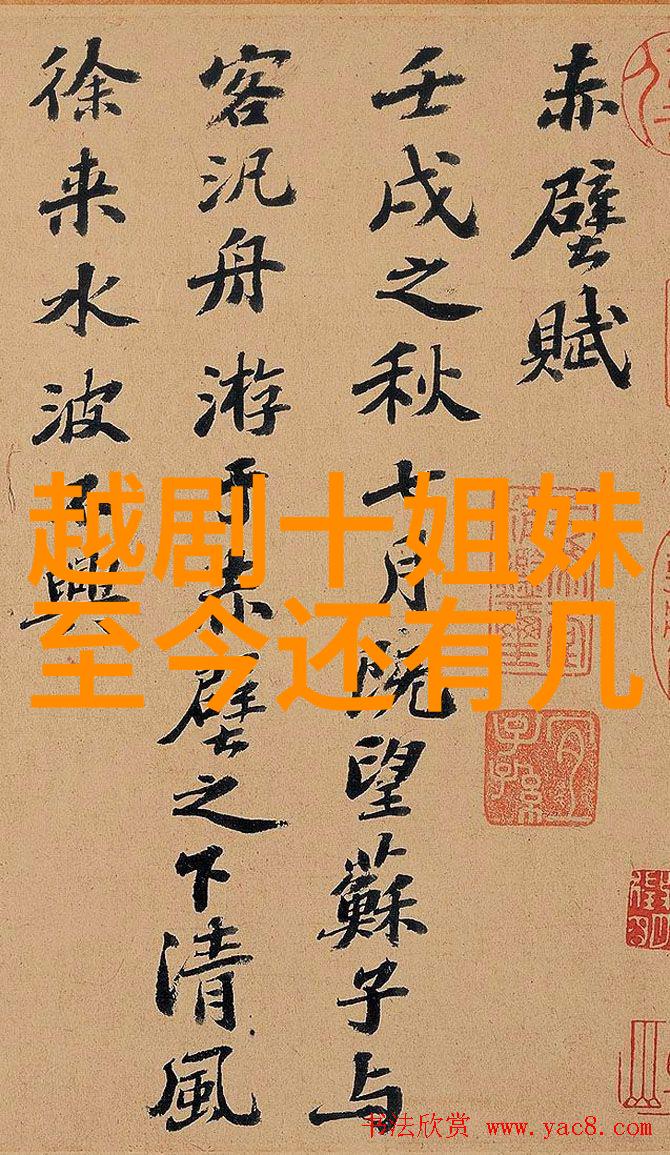 赤壁賦
壬戌之秋七月既望蘇子与
客汎舟游于赤壁之下清風
徐来水波不興
越剧十姐妹
至今还有几
书法欣赏 www.yac8.com